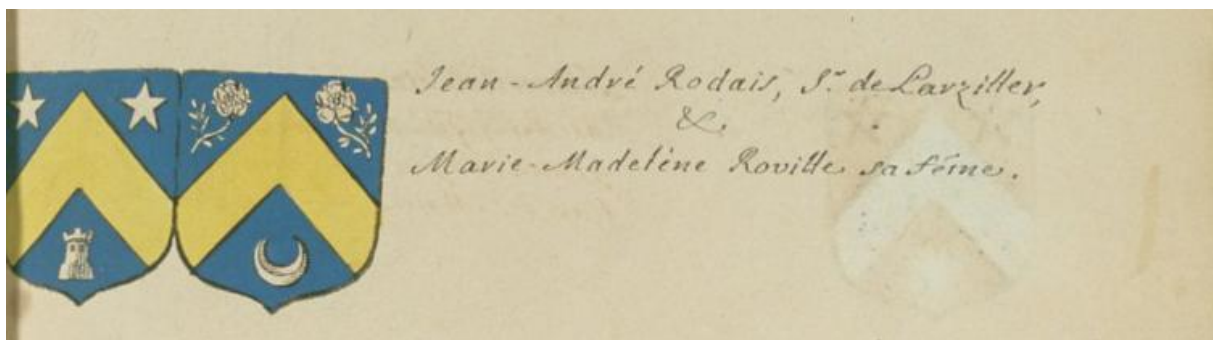 Jean-André Rodais, Sr. de Larziller,
&
Marie-Madeléne Roville sa féme.